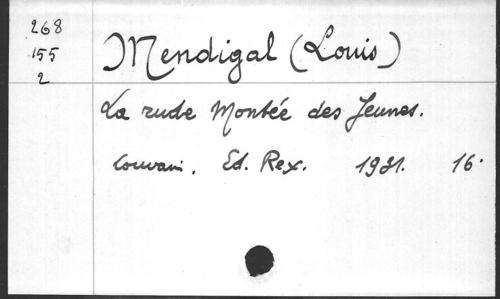 268
155
2
Mendigal (Louis)
La rude Montée des Jeunes.
Louvain. Ed. Rex. 1931. 16.